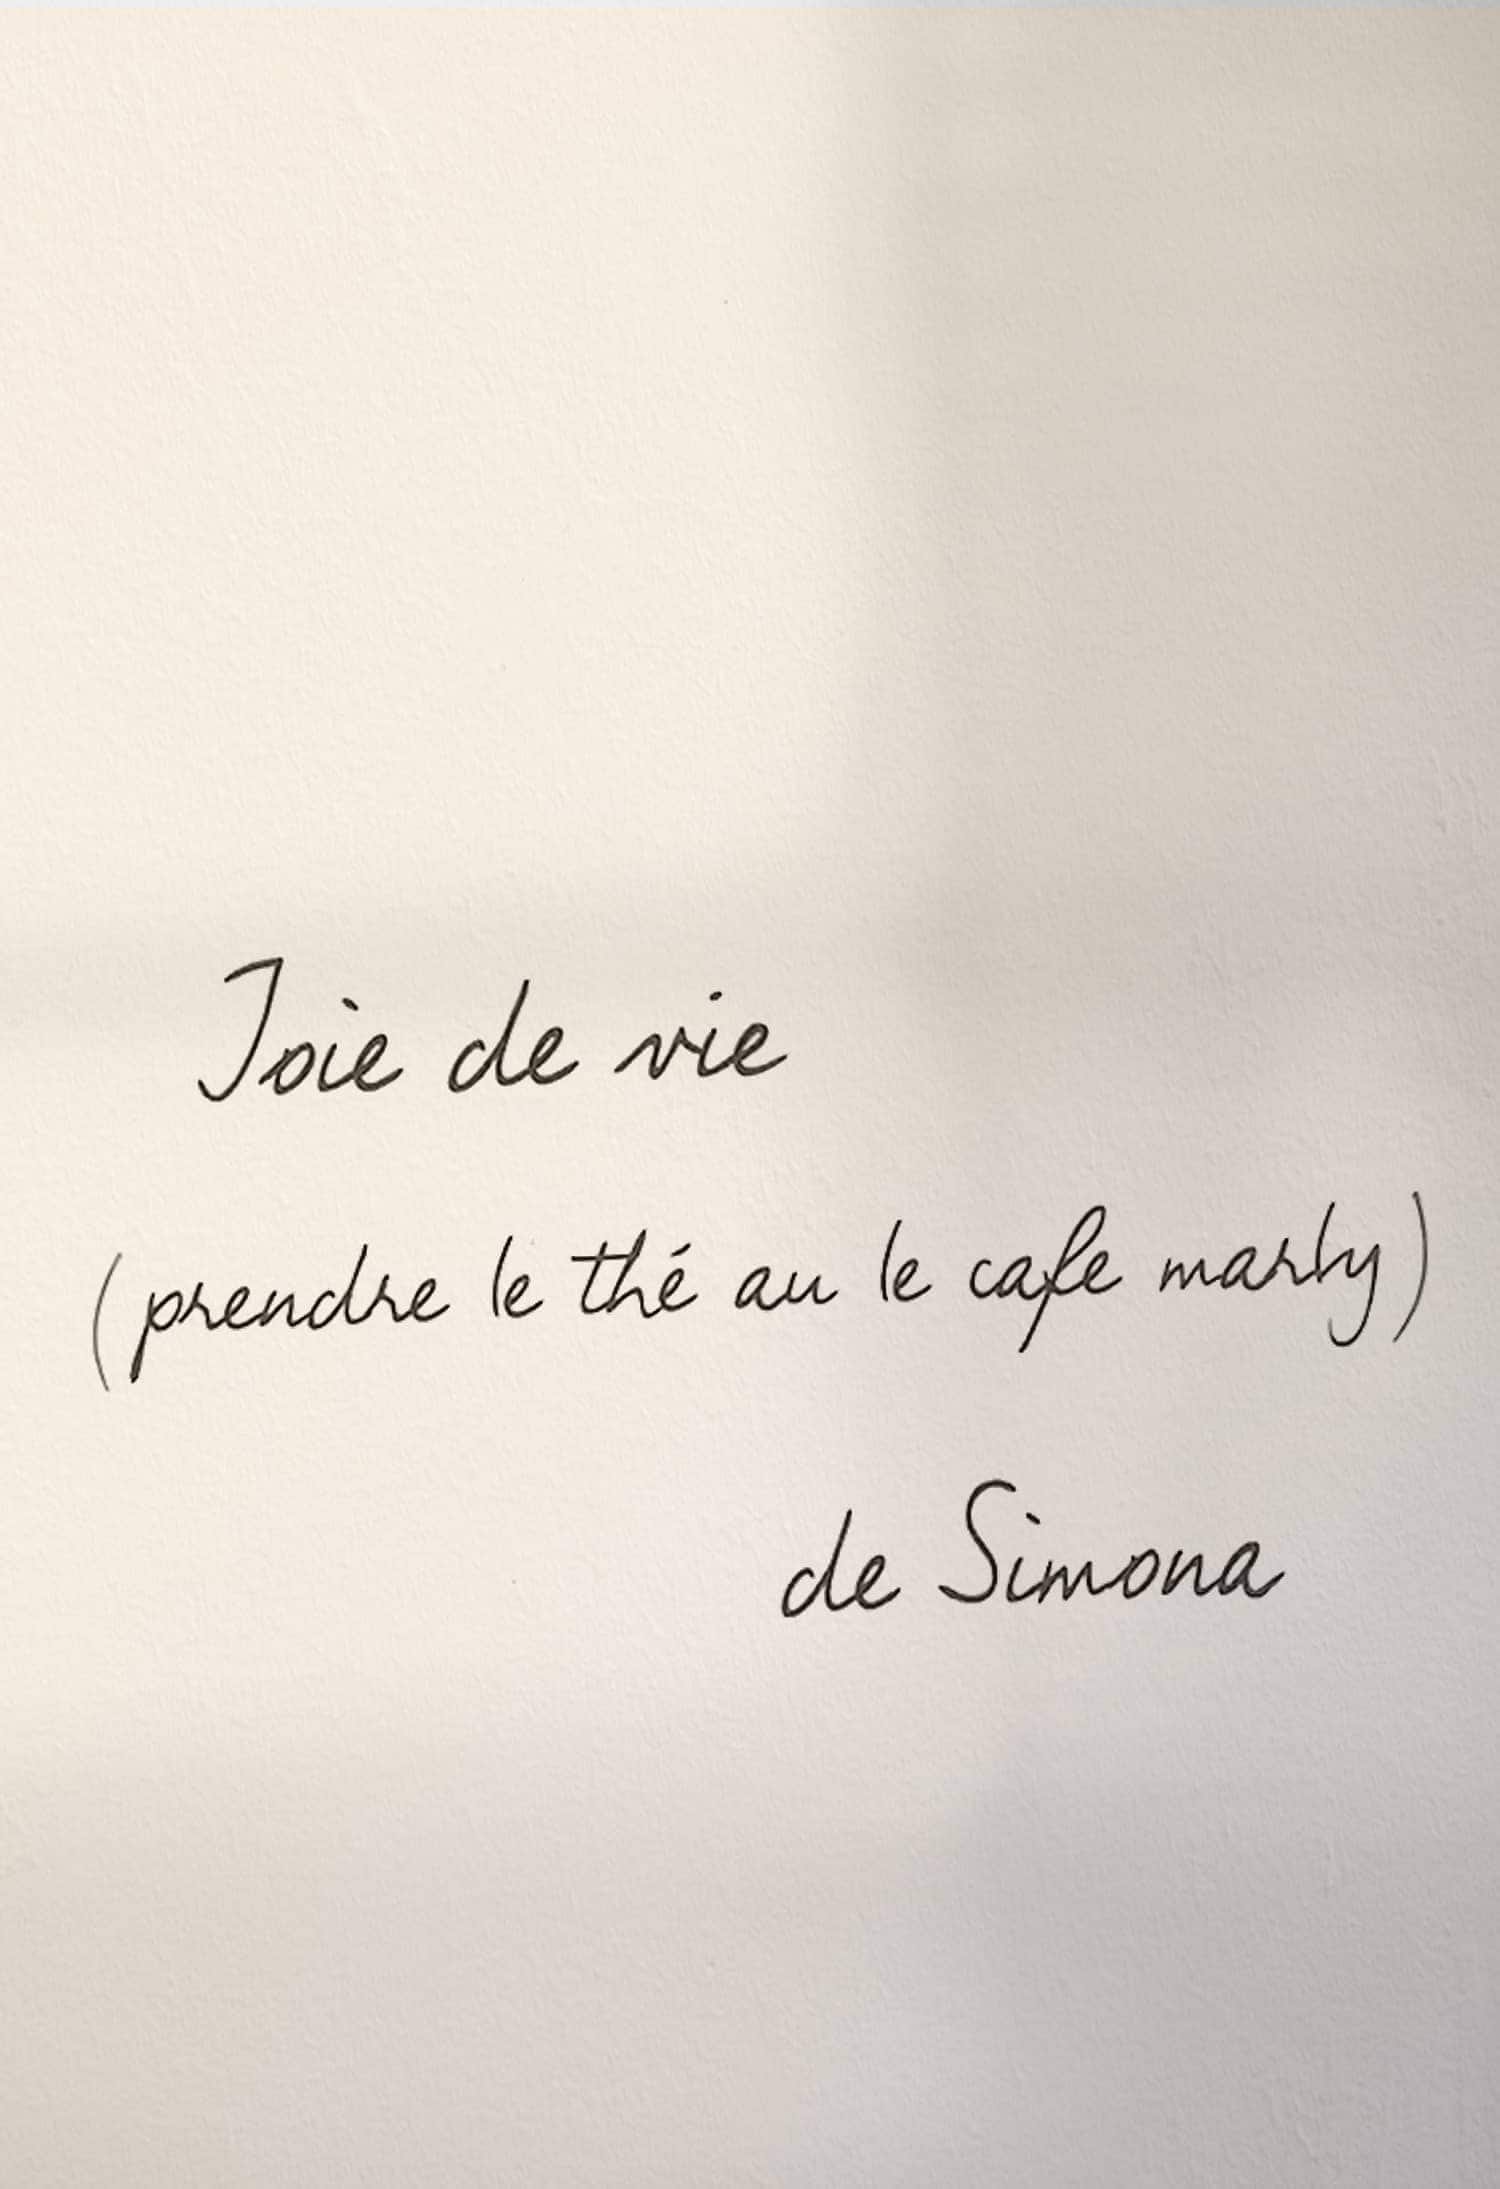 Joie de vie
(prendre le thé au le cafe marly)
de Simona